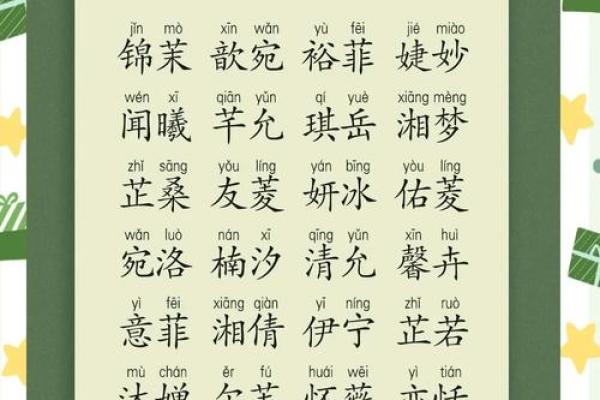 jǐn mò xīn wǎn yù fēi jié miào
锦茉 歆宛 裕菲 婕妙
wén xī qiān yǔn qí yuè xiāng mèng
闻曦 芊允 琪岳 湘梦
zhǐ sāng yǒu líng yán bīng yòu líng
芷桑 友菱 妍冰 佑菱
wǎn luò nán xī qīng yǔn xīn huì
宛洛 楠汐 清允 馨卉
yì fēi xiāng qiàn yī níng zhǐ ruò
意菲 湘倩 伊宁 芷若
mù chán ěr fú huái wēi yì tián
沐婵 尔芙 怀薇 亦恬